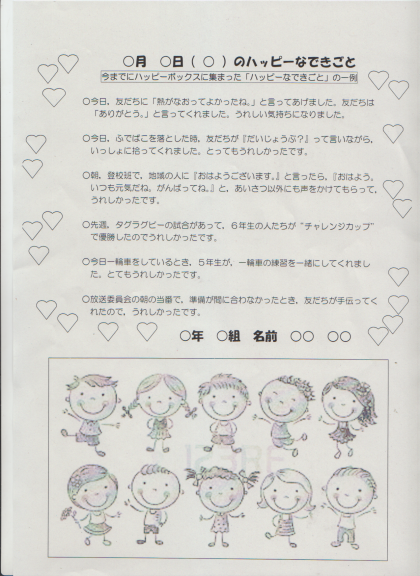 ○月　○日（○）のハッピーなできごと
今までにハッピーボックスに集まった「ハッピーなできごと」の一例
○今日、友だちに「熱がなおってよかったね。」と言ってあげました。友だちは
「ありがとう。」と言ってくれました。うれしい気持ちになりました。
○今日、ふでばこを落とした時、友だちが『だいじょうぶ？』って言いながら、
いっしょに拾ってくれました。とってもうれしかったです。
○朝、登校班で、地域の人に『おはようございます。』と言ったら、『おはよう。
いつも元気だね。がんばってね。』と、あいさつ以外にも声をかけてもらって、
うれしかったです。
○先週、タグラグビーの試合があって、６年生の人たちが“チャレンジカップ”
で優勝したのでうれしかったです。
○今日一輪車をしているとき、５年生が、一輪車の練習を一緒にしてくれまし
た。とてもうれしかったです。
○放送委員会の朝の当番で、準備が間に合わなかったとき、友だちが手伝ってく
れたので、うれしかったです。
○年　○組　名前　○○　○○